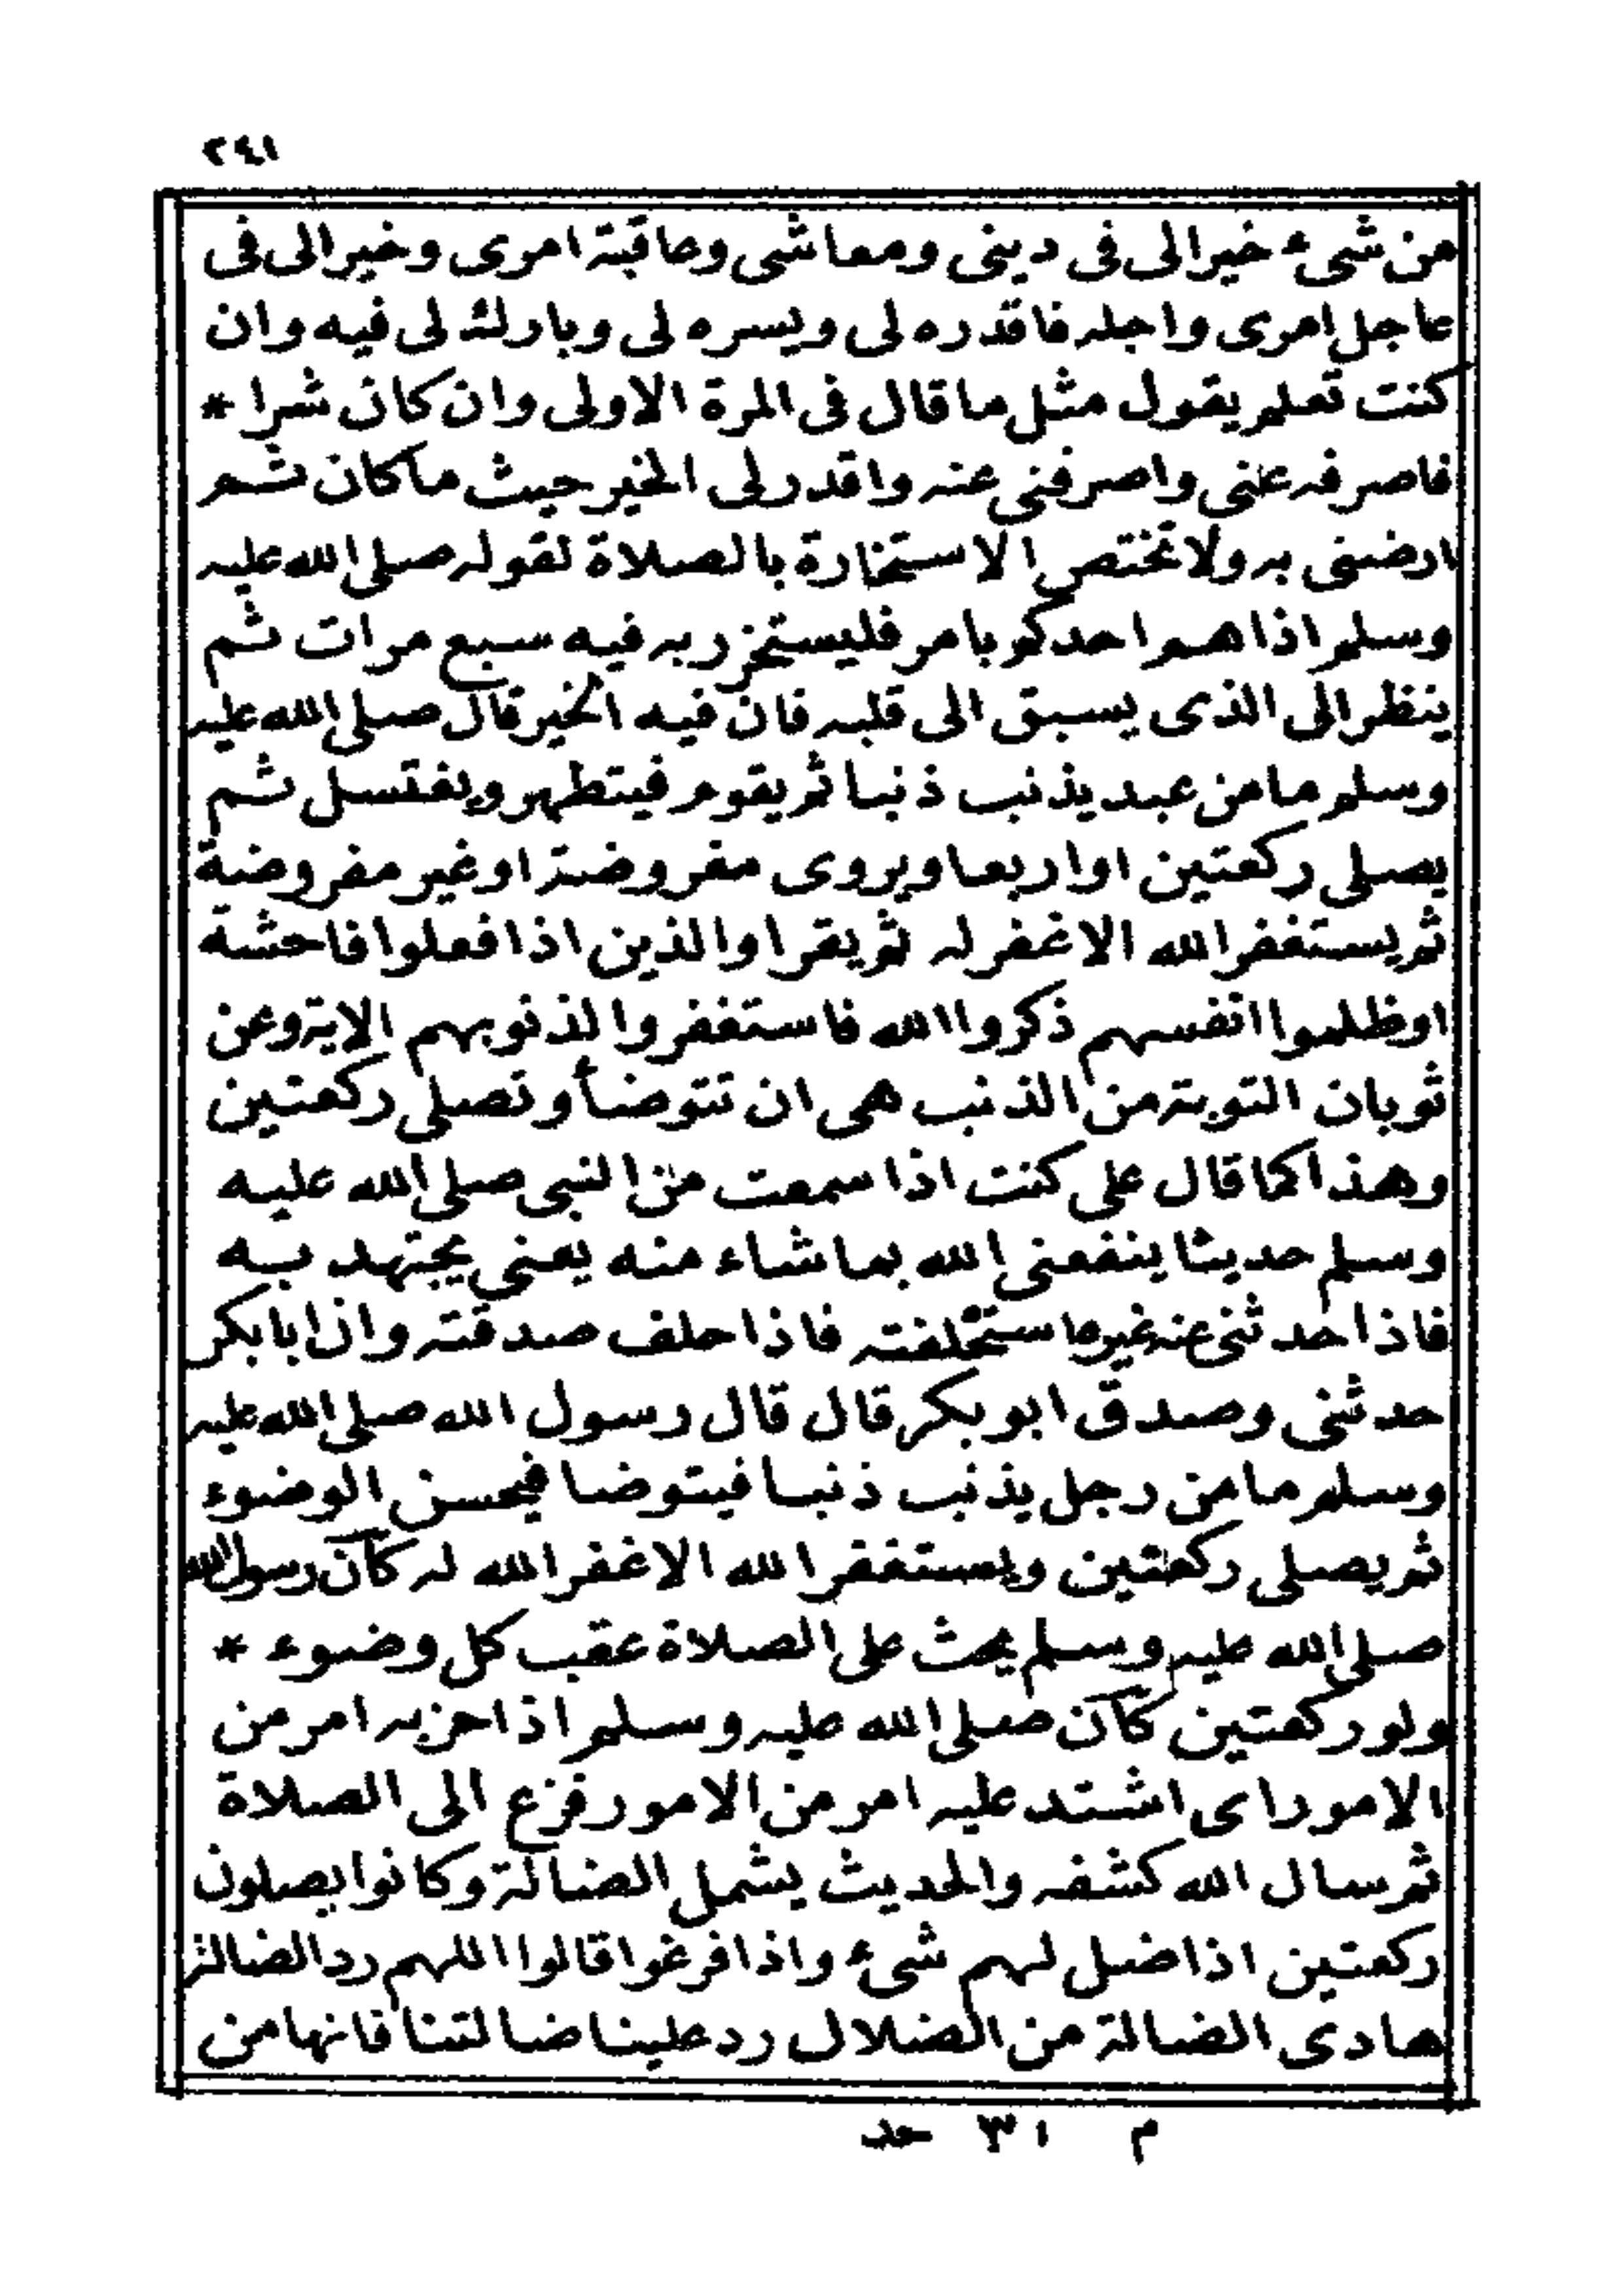 ٢٤١
من شىء خيرا لى فى دينى ومعاشى وعاقبة امرى وخيرا لى فى
عاجل امرى واجله فاقدره لى ويسره لى وبارك لى فيه وان
كنت تعلم يقول مثل ما قال فى المرة الاولى وان كان شرا *
فاصرفه عنى واصرفنى عنه واقدر لى الخير حيث ما كان ثم
ارضنى به ولا تختص الاستخارة بالصلاة لقوله صلى الله عليه
وسلم اذا هم احدكم بامر فليستخر ربه فيه سبع مرات ثم
ينظر الى الذى يسبق الى قلبه فان فيه الخير قال صلى الله عليه
وسلم ما من عبد يذنب ذنبا ثم يقوم فيتطهر ويغتسل ثم
يصلى ركعتين او اربعا ويروى مفروضة او غير مفروضة
ثم يستغفر الله الا غفر له ثم يقرا والذين اذا فعلوا فاحشة
او ظلموا انفسهم ذكروا الله فاستغفروا لذنوبهم الاية وعن
ثوبان التوبة من الذنب هى ان تتوضأ وتصلى ركعتين
وهذا كما قال على كنت اذا سمعت من النبى صلى الله عليه
وسلم حديثا ينفعنى الله بما شاء منه يعنى يجتهد به
فاذا حدثنى عنه غيرما ستخلفته فاذا حلف صدقته وان ابا بكر
حدثنى وصدق ابو بكر قال قال رسول الله صلى الله عليه
وسلم ما من رجل يذنب ذنبا فيتوضا فيحسن الوضوء
ثم يصلى ركعتين ويستغفر الله الا غفر الله له كان رسول الله
صلى الله عليه وسلم يحث على الصلاة عقب كل وضوء *
ولو ركعتين كان صلى الله عليه وسلم اذا حزبه امر من
الامور اى اشتد عليه امر من الامور فزع الى الصلاة
ثم سال الله كشفه والحديث يشمل الضالة وكانوا يصلون
ركعتين اذا ضل لهم شىء واذا فرغوا قالوا اللهم رد الضالة
هادى الضالة من الضلال رد علينا ضالتنا فانها من
م ا ٣١ حد